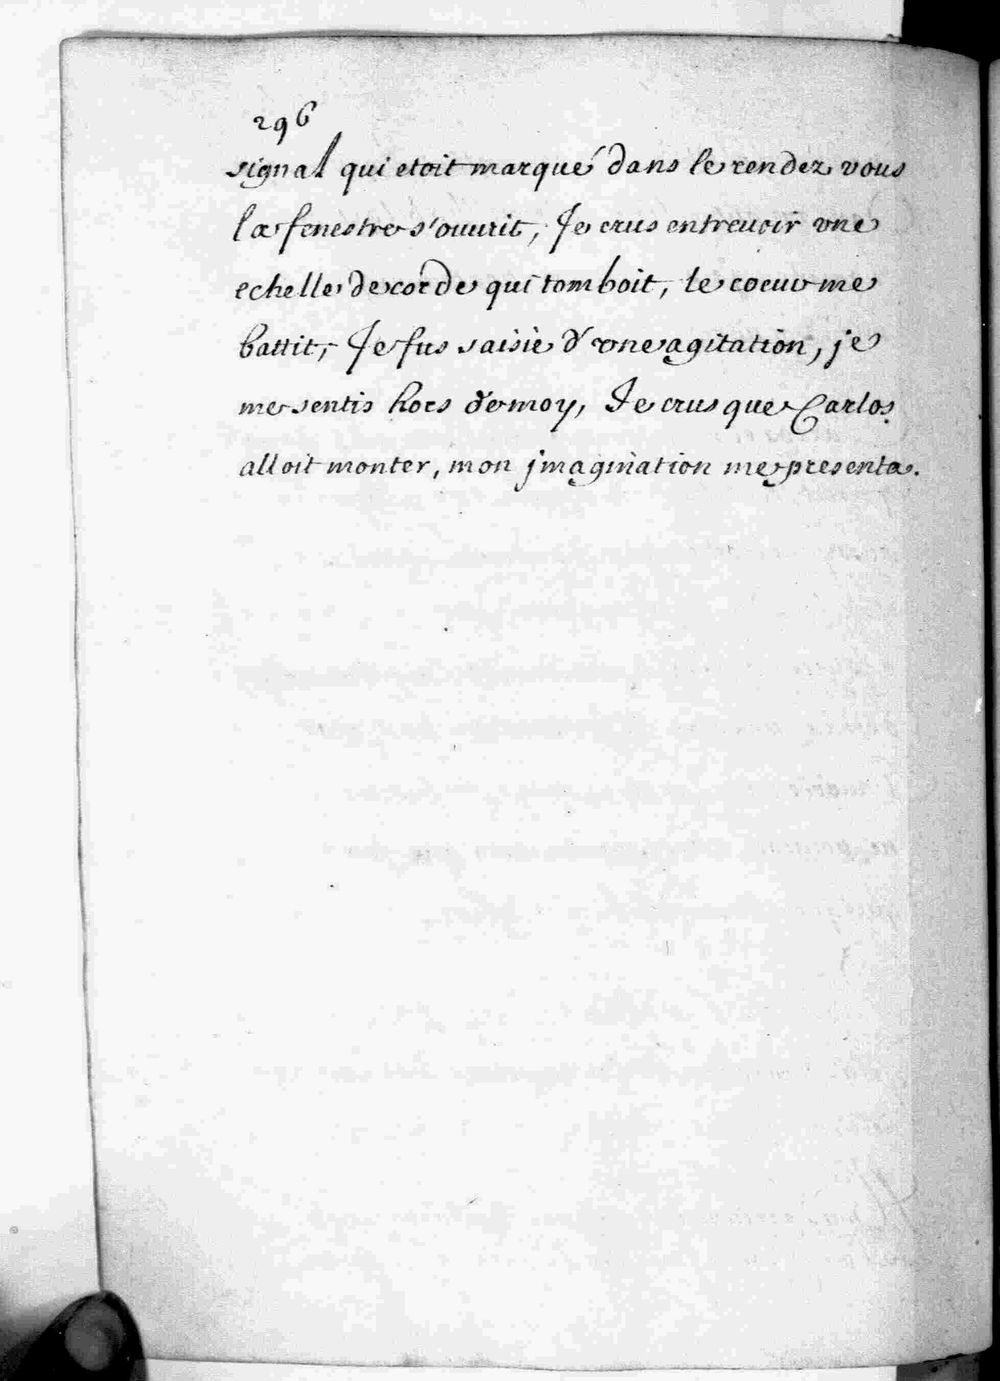 296
signal qui etoit marqué dans le rendez vous
la fenestre s'ouurit, Je crus entreuoir vne
echelle de corde qui tomboit, le coeur me
battit, Je fus saisie d'vne agitation, je
me sentis hors de moy, Je crus que Carlos
alloit monter, mon jmagination me presenta.